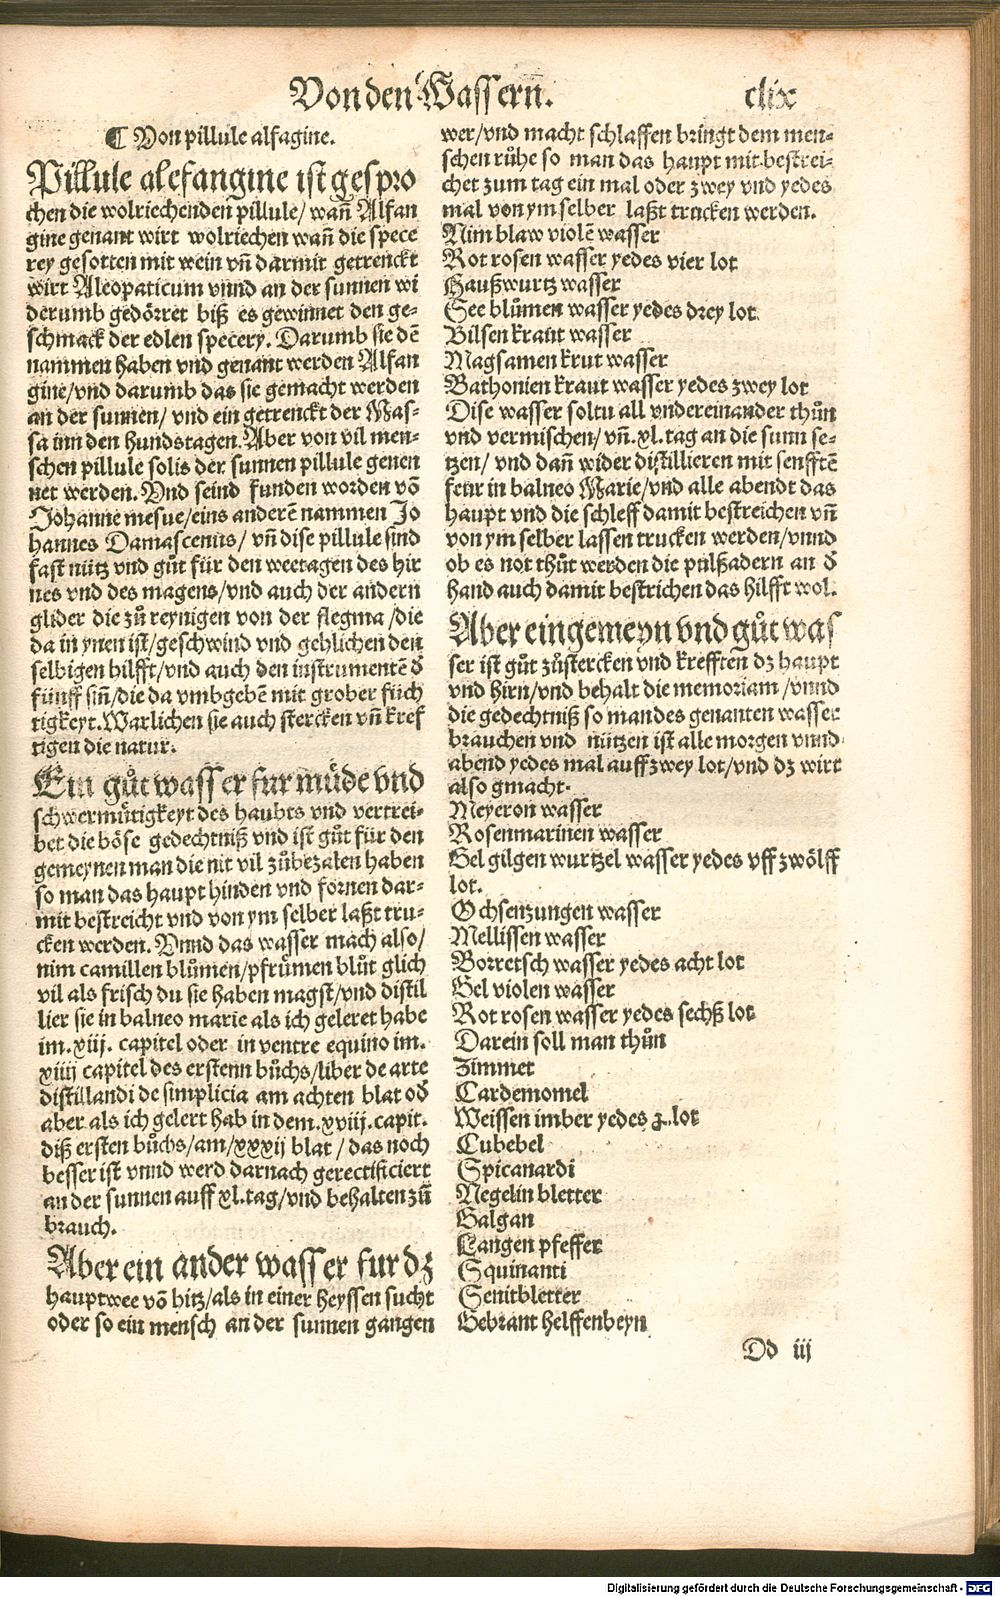 Von den Wassern̄.
clix
¶ Von pillule alfagine.
Pillule alefangine ist gespro
chen die wolriechenden pillule/ wañ Alfan
gine genant wirt wolriechen wañ die spece
rey gesotten mit wein vñ darmit getrenckt
wirt Aleopaticum vnnd an der sunnen wi
derumb gedörret biß es gewinnet den ge-
schmack der edlen specery. Darumb sie dē
nammen haben vnd genant werden Alfan
gine/vnd darumb das sie gemacht werden
an der sunnen/ vnd ein getrenckt der Mas-
sa inn den hundstagen. Aber von vil men-
schen pillule solis der sunnen pillule genen
net werden. Vnd seind funden worden vō
Johanne mesue/eins anderē nammen Jo
hannes Damascenus/ vñ dise pillule sind
fast nütz vnd gůt für den weetagen des hir
nes vnd des magens/vnd auch der andern
glider die zů reynigen von der flegma /die
da in ynen ist/geschwind vnd gehlichen den
selbigen hilfft/vnd auch den instrumentē d̄
fünff siñ/die da vmbgebē mit grober füch
tigkeyt. Warlichen sie auch stercken vñ kref
tigen die natur.
Ein gůt wasser fur müde vnd
schwermütigkeyt des haubts vnd vertrei-
bet die böse gedechtniß vnd ist gůt für den
gemeynen man die nit vil zůbezalen haben
so man das haupt hinden vnd fornen dar-
mit bestreicht vnd von ym selber laßt tru-
cken werden. Vnnd das wasser mach also/
nim camillen blůmen/pfrůmen blůt glich
vil als frisch du sie haben magst/vnd distil
lier sie in balneo marie als ich geleret habe
im. xiij. capitel oder in ventre equino im.
xiiij capitel des erstenn bůchs/liber de arte
distillandi de simplicia am achten blat od̄
aber als ich gelert hab in dem. xviij. capit.
diß ersten bůchs/am/xxxij blat / das noch
besser ist vnnd werd darnach gerectificiert
an der sunnen auff xl. tag/vnd behalten zů
brauch.
Aber ein ander wasser fur dz
hauptwee vō hitz/als in einer heyssen sucht
oder so ein mensch an der sunnen gangen
wer/vnd macht schlaffen bringt dem men-
schen růhe so man das haupt mit bestrei-
chet zum tag ein mal oder zwey vnd yedes
mal von ym selber laßt trucken werden.
Nim blaw violē wasser
Rot rosen wasser yedes vier lot
Haußwurtz wasser
See blůmen wasser yedes drey lot.
Bilsen kraut wasser
Magsamen krut wasser
Bathonien kraut wasser yedes zwey lot
Dise wasser soltu all vndereinander thůn
vnd vermischen/ vñ. xl. tag an die sunn se-
tzen/ vnd dañ wider distillieren mit senfftē
feur in balneo Marie/vnd alle abendt das
haupt vnd die schleff damit bestreichen vñ
von ym selber lassen trucken werden/vnnd
ob es not thůt werden die pulßadern an d̄
hand auch damit bestrichen das hilfft wol.
Aber ein gemeyn vnd gůt was
ser ist gůt zůstercken vnd krefften dz haupt
vnd hirn/vnd behalt die memoriam /vnnd
die gedechtniß so man des genanten wasser
brauchen vnd nützen ist alle morgen vnnd
abend yedes mal auff zwey lot/vnd dz wirt
also gmacht.
Meyeron wasser
Rosenmarinen wasser
Gel gilgen wurtzel wasser yedes vff zwölff
lot.
Ochsenzungen wasser
Mellissen wasser
Borretsch wasser yedes acht lot
Gel violen wasser
Rot rosen wasser yedes sechß lot
Darein soll man thůn
Zimmet
Cardemomel
Weissen imber yedes lot
Cubebel
Spicanardi
Negelin bletter
Galgan
Langen pfeffer
Squinanti
Senitbletter
Gebrant helffenbeyn
Dd iij
Digitalisierung gefördert durch die Deutsche Forschungsgemeinschaft - DFG